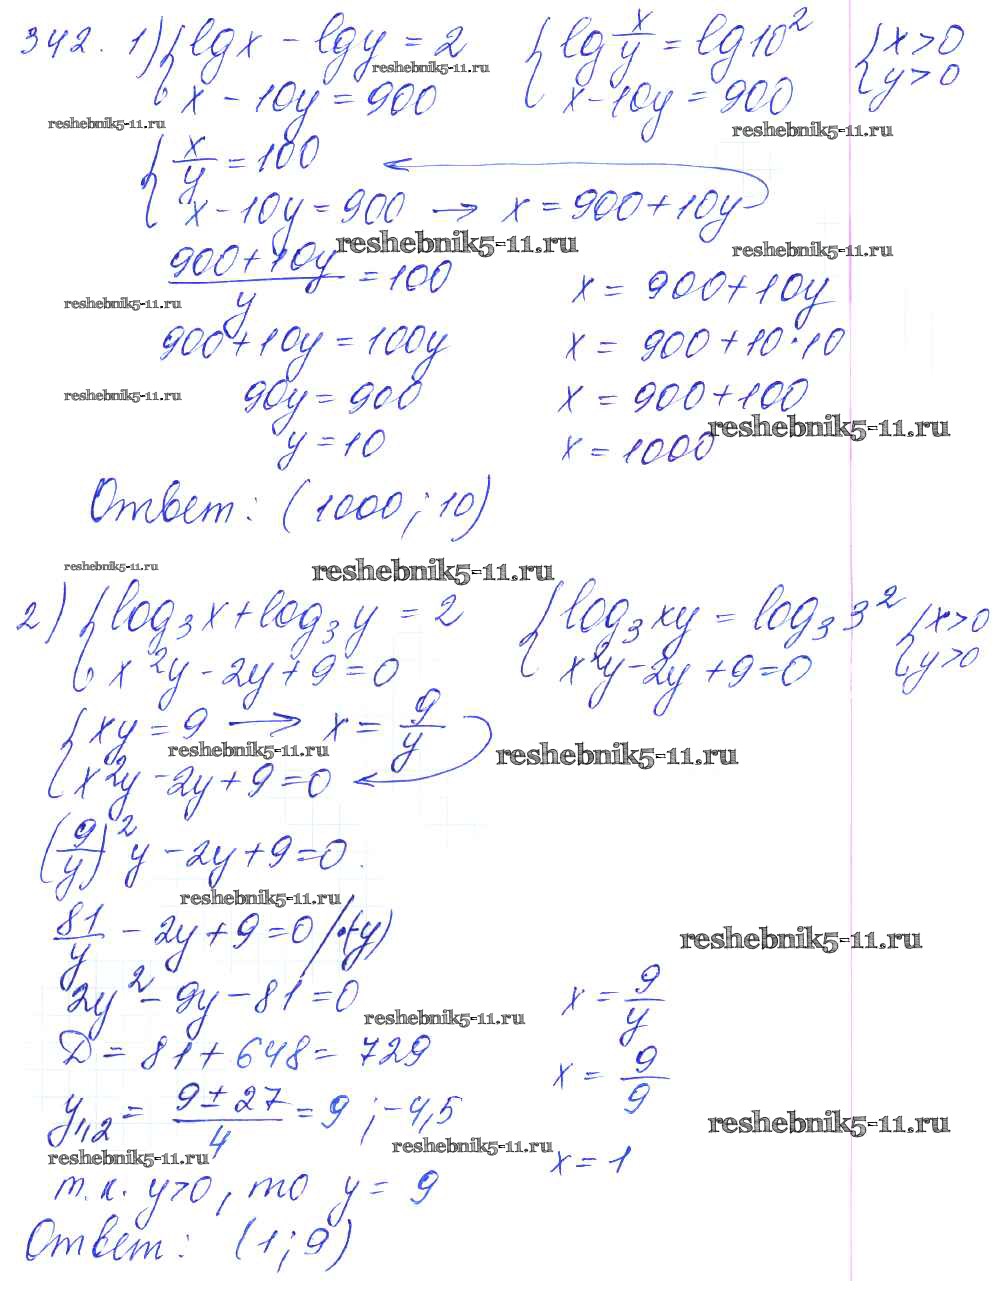 342. 1) { lg x - lg y = 2   { lg x/y = lg 10²   { x > 0
x - 10y = 900   x - 10y = 900   y > 0
reshebnik5-11.ru
reshebnik5-11.ru   reshebnik5-11.ru
{ x/y = 100
x - 10y = 900 → x = 900 + 10y
reshebnik5-11.ru   reshebnik5-11.ru
(900 + 10y)/y = 100   x = 900 + 10y
reshebnik5-11.ru
900 + 10y = 100y   x = 900 + 10·10
reshebnik5-11.ru   90y = 900   x = 900 + 100
reshebnik5-11.ru
y = 10   x = 1000
Ответ: (1000; 10)
reshebnik5-11.ru   reshebnik5-11.ru
2) { log₃ x + log₃ y = 2   { log₃ xy = log₃ 3²   { x > 0
x²y - 2y + 9 = 0   x²y - 2y + 9 = 0   y > 0
{ xy = 9 → x = 9/y
reshebnik5-11.ru   reshebnik5-11.ru
x²y - 2y + 9 = 0
(9/y)² y - 2y + 9 = 0
reshebnik5-11.ru
81/y - 2y + 9 = 0 /·(-y)
reshebnik5-11.ru
2y² - 9y - 81 = 0   x = 9/y
reshebnik5-11.ru
D = 81 + 648 = 729   x = 9/9
y₁,₂ = (9 ± 27)/4 = 9; -4,5
reshebnik5-11.ru
reshebnik5-11.ru   reshebnik5-11.ru   x = 1
т.к. y > 0, то y = 9
Ответ: (1; 9)